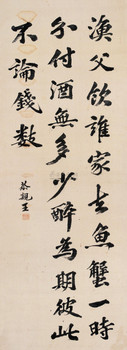 漁父飲誰家去魚蟹一時
分付酒無多少醉為期彼此
不論錢數
恭親王